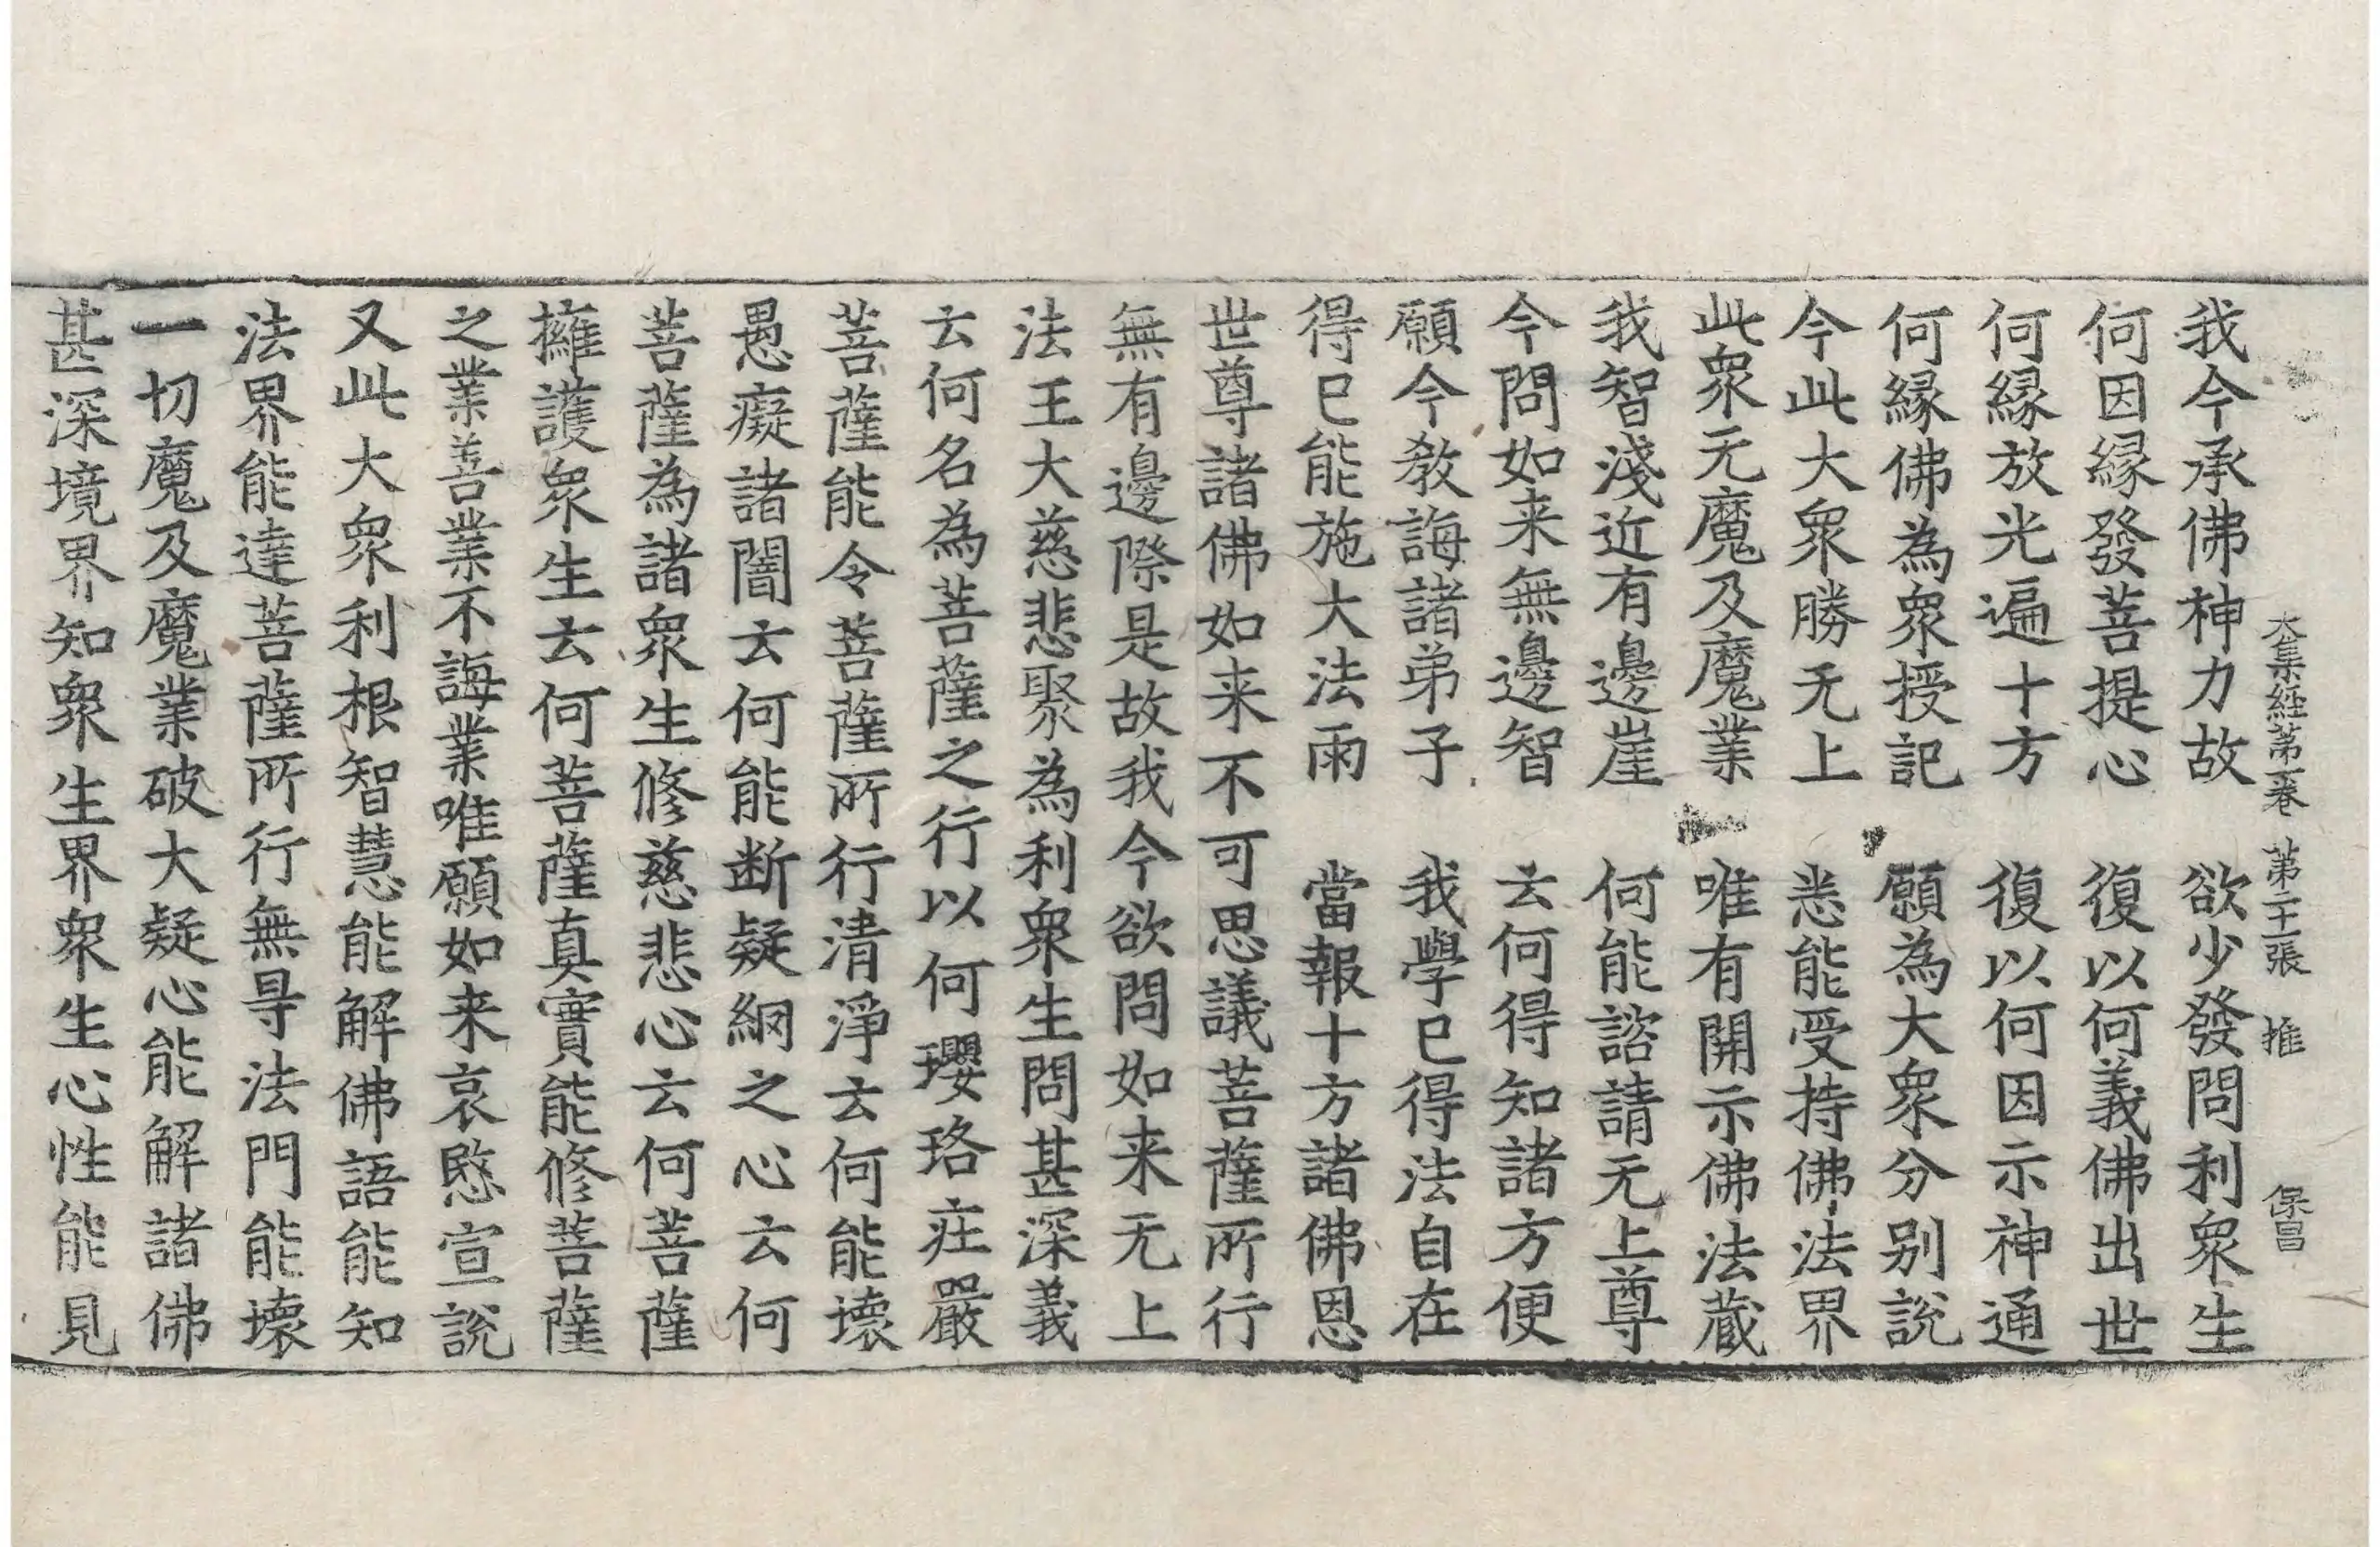 大集經第一卷 第二十二張 推 保昌
我今承佛神力故 欲少發問利衆生
何因縁發菩提心 復以何義佛出世
何縁放光遍十方 復以何因示神通
何縁佛為衆授記 願為大衆分别說
今此大衆勝无上 悉能受持佛法界
此衆无魔及魔業 唯有開示佛法蔵
我智淺近有邊崖 何能諮請无上尊
今問如来無邊智 云何得知諸方便
願今教誨諸弟子 我學已得法自在
得已能施大法雨 當報十方諸佛恩
世尊諸佛如来不可思議菩薩所行
無有邊際是故我今欲問如来无上
法王大慈悲聚為利衆生問甚深義
云何名為菩薩之行以何瓔珞莊嚴
菩薩能令菩薩所行清淨云何能壞
愚癡諸闇云何能断疑網之心云何
菩薩為諸衆生修慈悲心云何菩薩
擁護衆生云何菩薩真實能修菩薩
之業善業不誨業唯願如来哀愍宣說
又此大衆利根智慧能解佛語能知
法界能達菩薩所行無㝵法門能壞
一切魔及魔業破大疑心能解諸佛
甚深境界知衆生界衆生心性能見